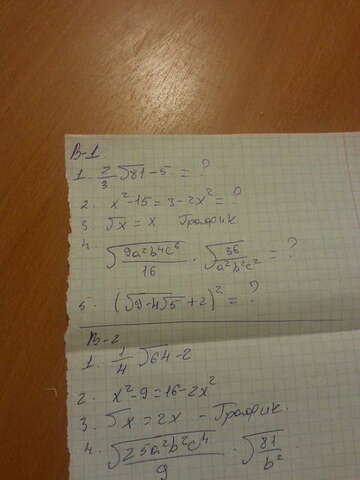 В-1
1. 2/3 √81 - 5 = ?
2. x² - 15 = 3 - 2x² = ?
3. √x = x График
4. √(9a²b⁴c⁶/16) · √(36/a²b²c²) = ?
5. (√(9-4√5) + 2)² = ?
В-2
1. 1/4 √64 - 2
2. x² - 9 = 16 - 2x²
3. √x = 2x - График.
4. √(25a²b²c⁴/9) · √(81/b²)